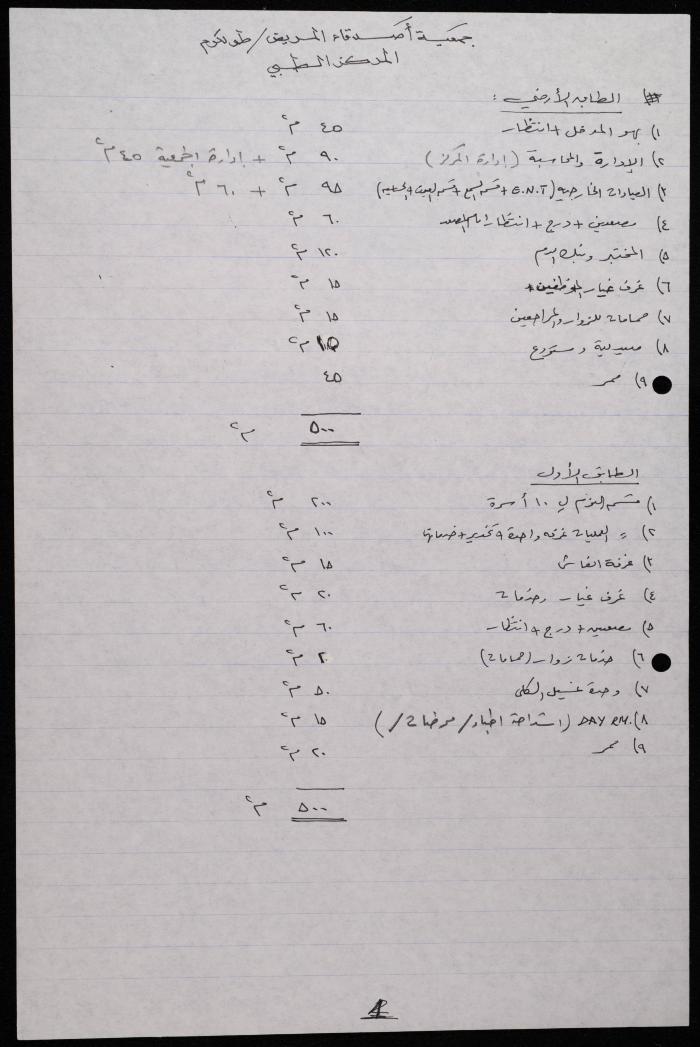 جمعية أصدقاء المريض / طولكرم
المركز الطبي
# الطابق الأرضي :
١) بهو المدخل + انتظار ٤٥ م٢
٢) الإدارة والمحاسبة (إدارة المركز) ٩٠ م٢ + إدارة الجمعية ٤٥ م٢
٣) العيادات الخارجية (E.N.T + قسم السمع + قسم العيون + ) ٩٥ م٢ + ٦٠ م٢
٤) مصعدين + درج + انتظار امام المصعد ٦٠ م٢
٥) المختبر وبنك الدم ١٢٠ م٢
٦) غرف غيار الموظفين + ١٥ م٢
٧) حمامات للزوار والمراجعين ١٥ م٢
٨) صيدلية ومستودع ١٥ م٢
٩) ممر ٤٥
٥٠٠ م٢
الطابق الأول
١) قسم النوم ل ١٠ أسرة ٢٠٠ م٢
٢) = العمليات غرفه واحدة + تخدير + خدماتها ١٠٠ م٢
٣) غرفة انعاش ١٥ م٢
٤) غرف غيار وخدمات ٢٠ م٢
٥) مصعدين + درج + انتظار ٦٠ م٢
٦) خدمات زوار (حمامات) ٢٠ م٢
٧) وحدة غسيل الكلى ٥٠ م٢
٨) DAY RM. (استراحة اطباء / ممرضات /) ١٥ م٢
٩) ممر ٢٠ م٢
٥٠٠ م٢